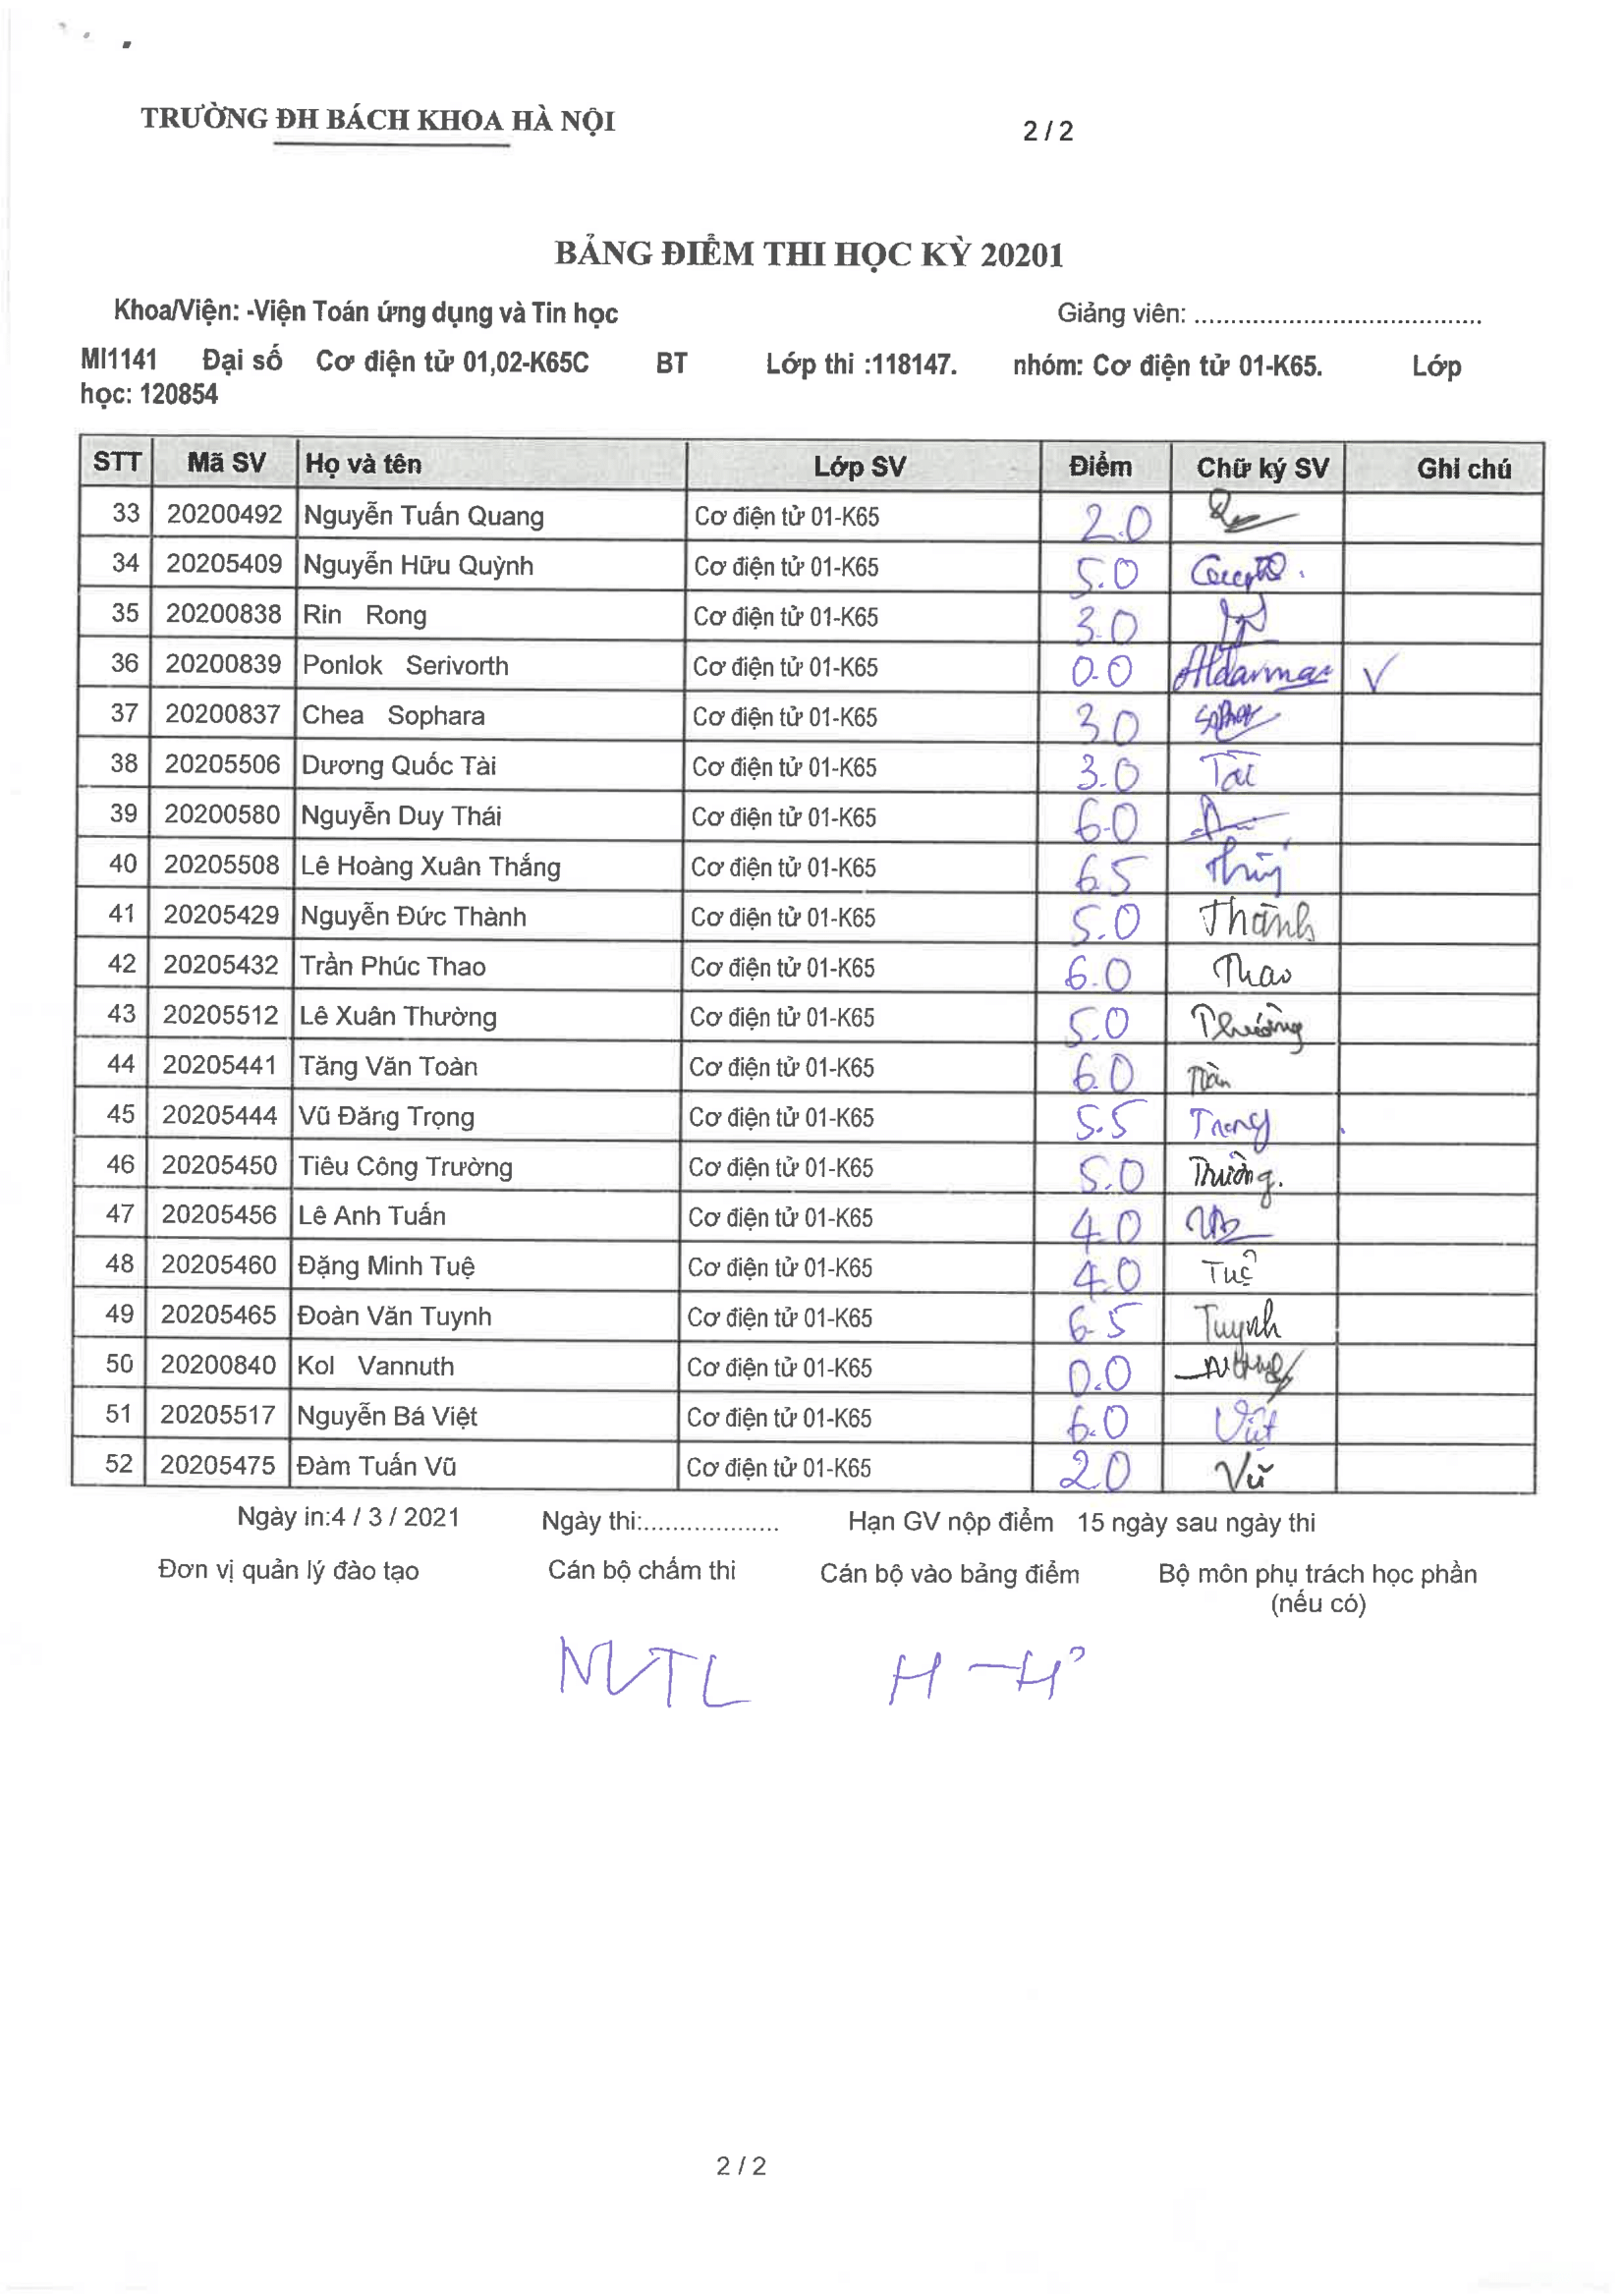 TRƯỜNG ĐH BÁCH KHOA HÀ NỘI
2 / 2
BẢNG ĐIỂM THI HỌC KỲ 20201
Khoa/Viện: -Viện Toán ứng dụng và Tin học Giảng viên: .......................................
MI1141 Đại số Cơ điện tử 01,02-K65C BT Lớp thi :118147. nhóm: Cơ điện tử 01-K65. Lớp
học: 120854
STT Mã SV Họ và tên Lớp SV Điểm Chữ ký SV Ghi chú
33 20200492 Nguyễn Tuấn Quang Cơ điện tử 01-K65 2.0
34 20205409 Nguyễn Hữu Quỳnh Cơ điện tử 01-K65 5.0
35 20200838 Rin Rong Cơ điện tử 01-K65 3.0
36 20200839 Ponlok Serivorth Cơ điện tử 01-K65 0.0 V
37 20200837 Chea Sophara Cơ điện tử 01-K65 3.0
38 20205506 Dương Quốc Tài Cơ điện tử 01-K65 3.0 Tài
39 20200580 Nguyễn Duy Thái Cơ điện tử 01-K65 6.0
40 20205508 Lê Hoàng Xuân Thắng Cơ điện tử 01-K65 6.5
41 20205429 Nguyễn Đức Thành Cơ điện tử 01-K65 5.0 Thành
42 20205432 Trần Phúc Thao Cơ điện tử 01-K65 6.0 Thao
43 20205512 Lê Xuân Thường Cơ điện tử 01-K65 5.0 Thường
44 20205441 Tăng Văn Toàn Cơ điện tử 01-K65 6.0 Toàn
45 20205444 Vũ Đăng Trọng Cơ điện tử 01-K65 5.5 Trọng
46 20205450 Tiêu Công Trường Cơ điện tử 01-K65 5.0 Trường.
47 20205456 Lê Anh Tuấn Cơ điện tử 01-K65 4.0
48 20205460 Đặng Minh Tuệ Cơ điện tử 01-K65 4.0 Tuệ
49 20205465 Đoàn Văn Tuynh Cơ điện tử 01-K65 6.5 Tuynh
50 20200840 Kol Vannuth Cơ điện tử 01-K65 0.0
51 20205517 Nguyễn Bá Việt Cơ điện tử 01-K65 6.0 Việt
52 20205475 Đàm Tuấn Vũ Cơ điện tử 01-K65 2.0 Vũ
Ngày in:4 / 3 / 2021 Ngày thi:................... Hạn GV nộp điểm 15 ngày sau ngày thi
Đơn vị quản lý đào tạo Cán bộ chấm thi Cán bộ vào bảng điểm Bộ môn phụ trách học phần
(nếu có)
2 / 2